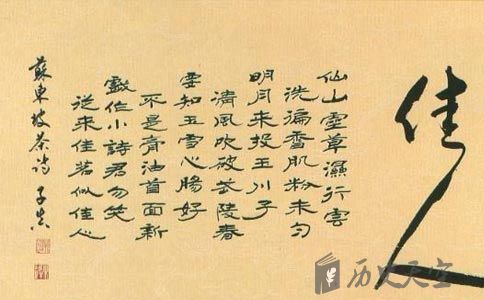 佳人
仙山靈草濕行雲
洗遍香肌粉未匀
明月来投玉川子
清風吹破武陵春
要知玉雪心腸好
不是膏油首面新
戲作小詩君勿笑
從来佳茗似佳人
蘇東坡茶诗 子
历史天空